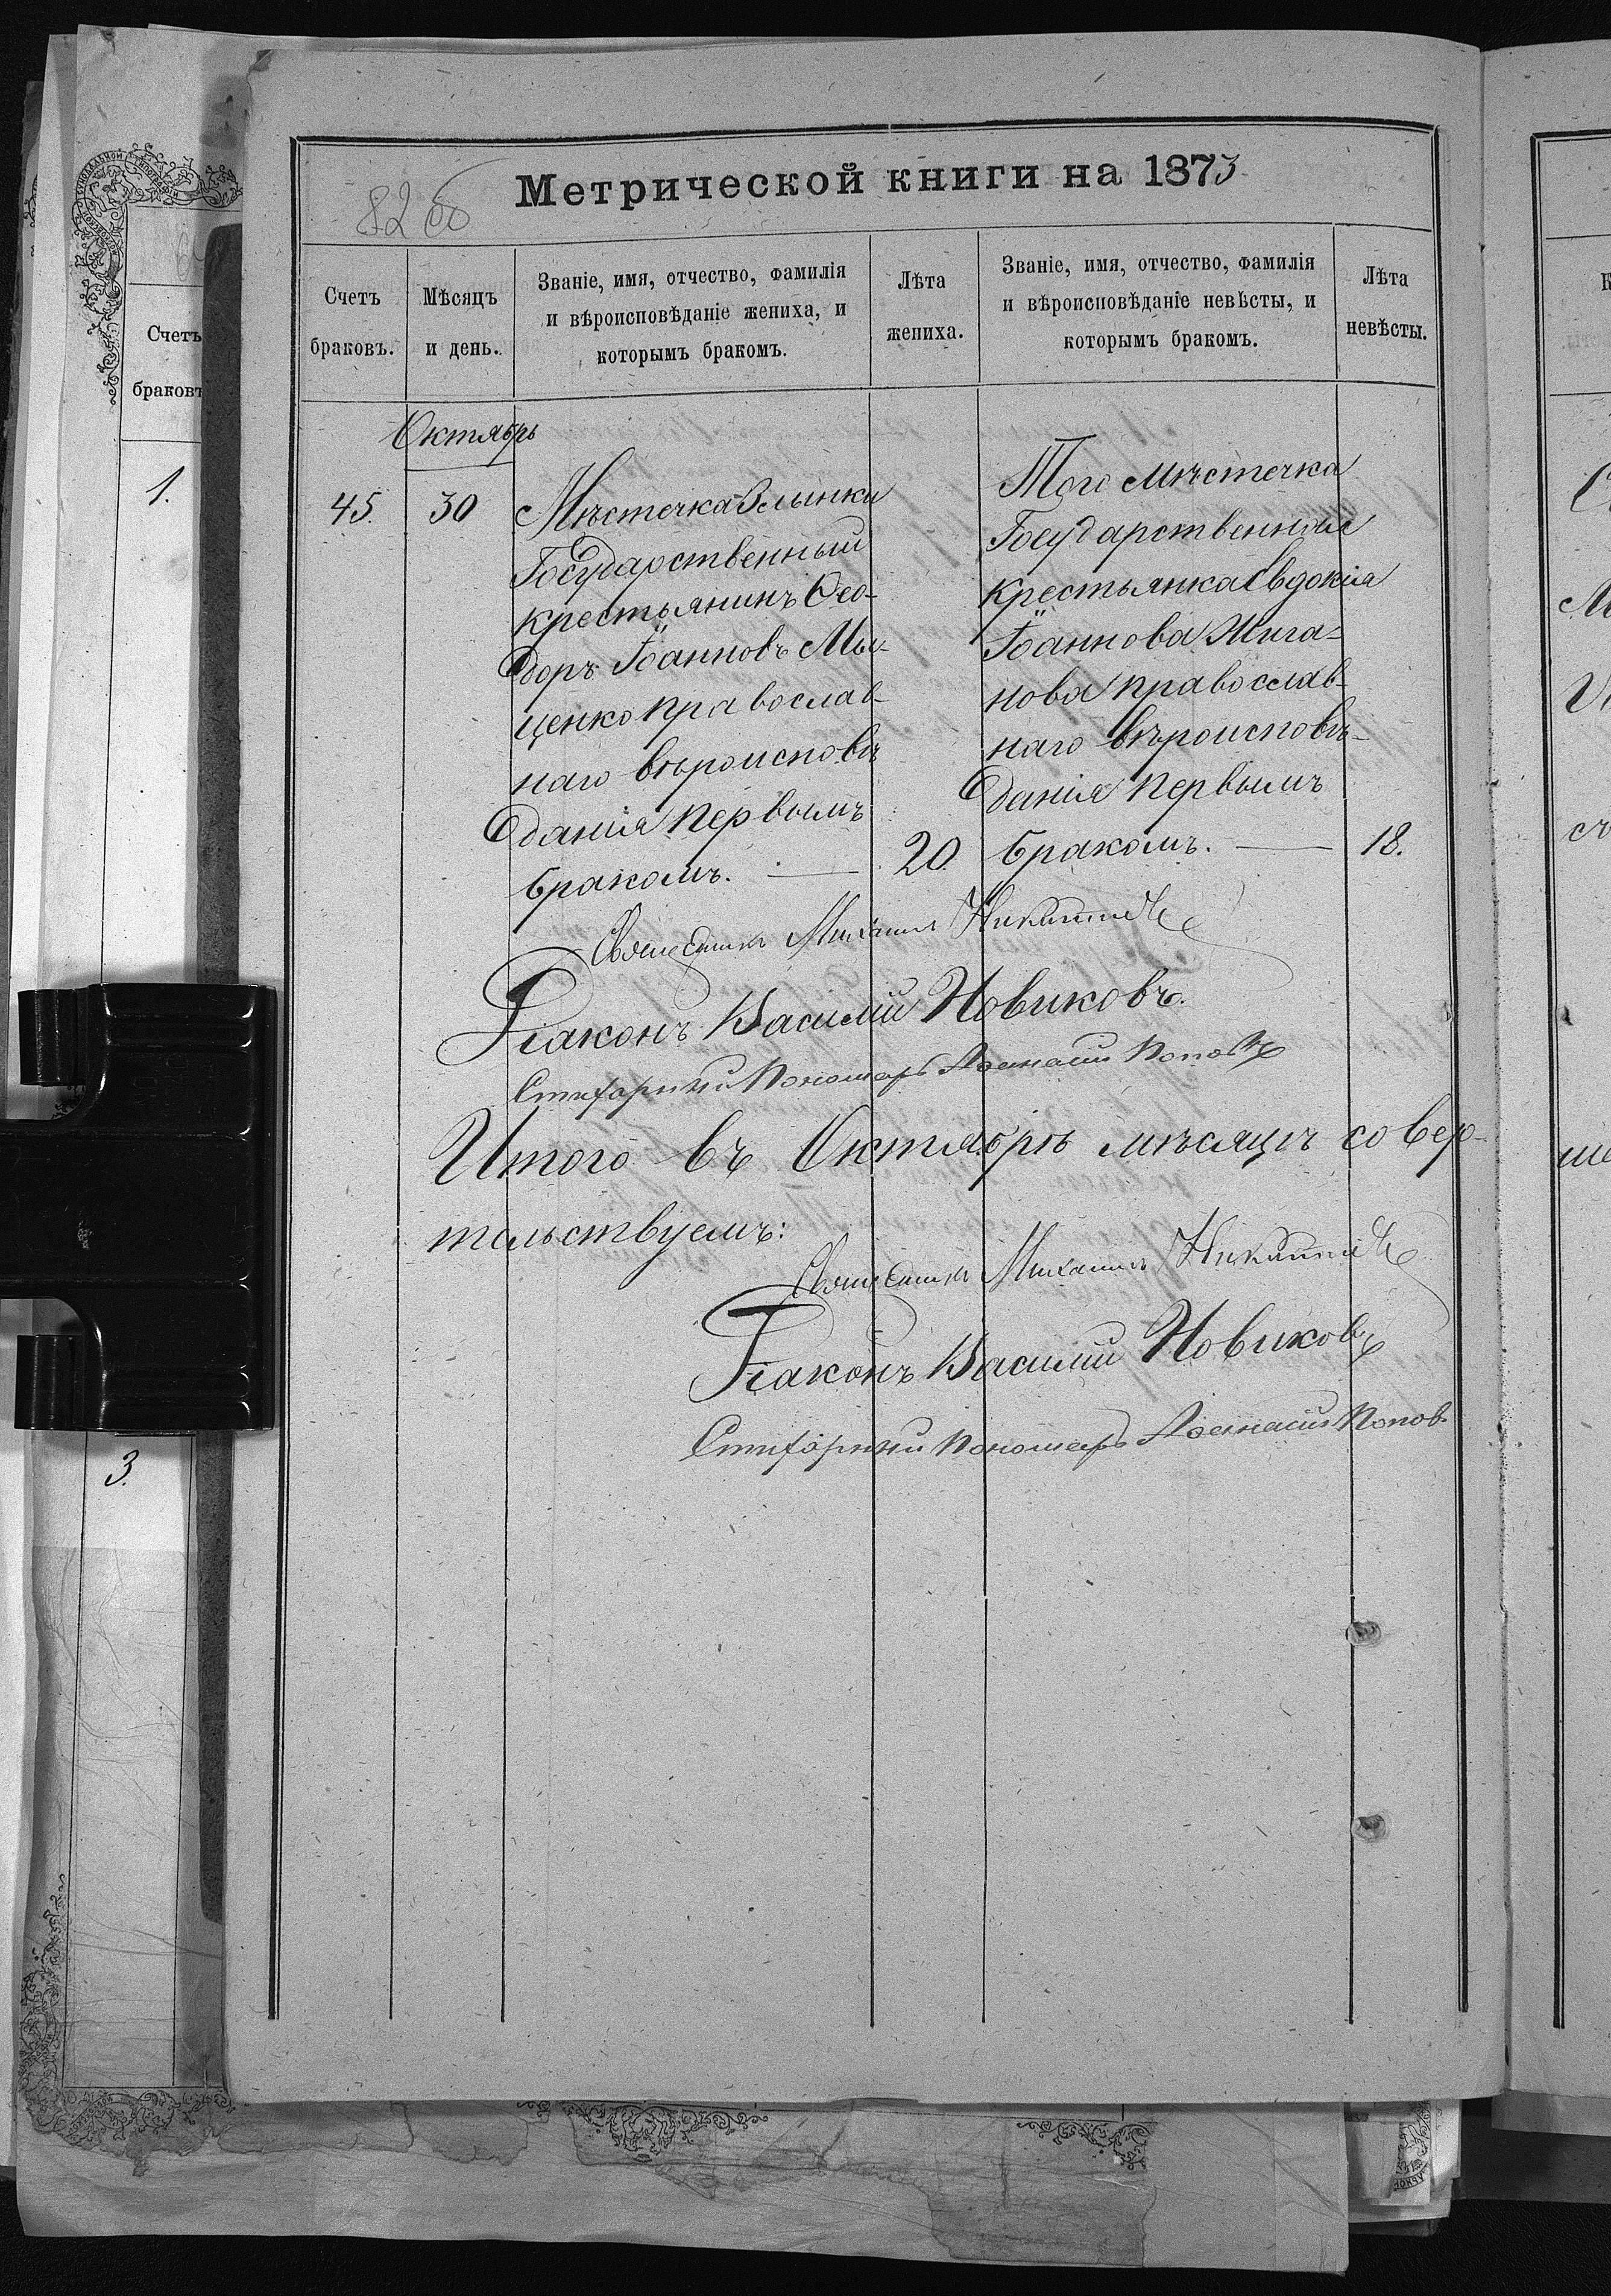 82 об
Метрической книги на 1873
Счетъ браковъ.
Мѣсяцъ и день.
Званіе, имя, отчество, фамилія
и вѣроисповѣданіе жениха, и
которымъ бракомъ.
Лѣта
жениха.
Званіе, имя, отчество, фамилія
и вѣроисповѣданіе невѣсты, и
которымъ бракомъ.
Лѣта
невѣсты.
Октябрь
45. 30
Мѣстечка Злынки
Государственный
крестьянинъ Ѳео-
доръ Іоанновъ Мы-
ценко православ-
наго вѣроисповѣ
данія первымъ
бракомъ. — 20.
Того мѣстечка
Государственная
крестьянка Евдокія
Іоаннова Жига-
нова православ-
наго вѣроисповѣ-
данія первымъ
бракомъ. — 18.
Священникъ Михаилъ
Діаконъ Василій Новиковъ.
Стихарный Пономарь Аѳанасій Поповъ
Итого въ Октябрѣ мѣсяцѣ совер-
тельствуемъ:
Священникъ Михаилъ
Діаконъ Василій Новиковъ
Стихарный Пономарь Аѳанасій Попов
Счетъ
браковъ
1.
3.